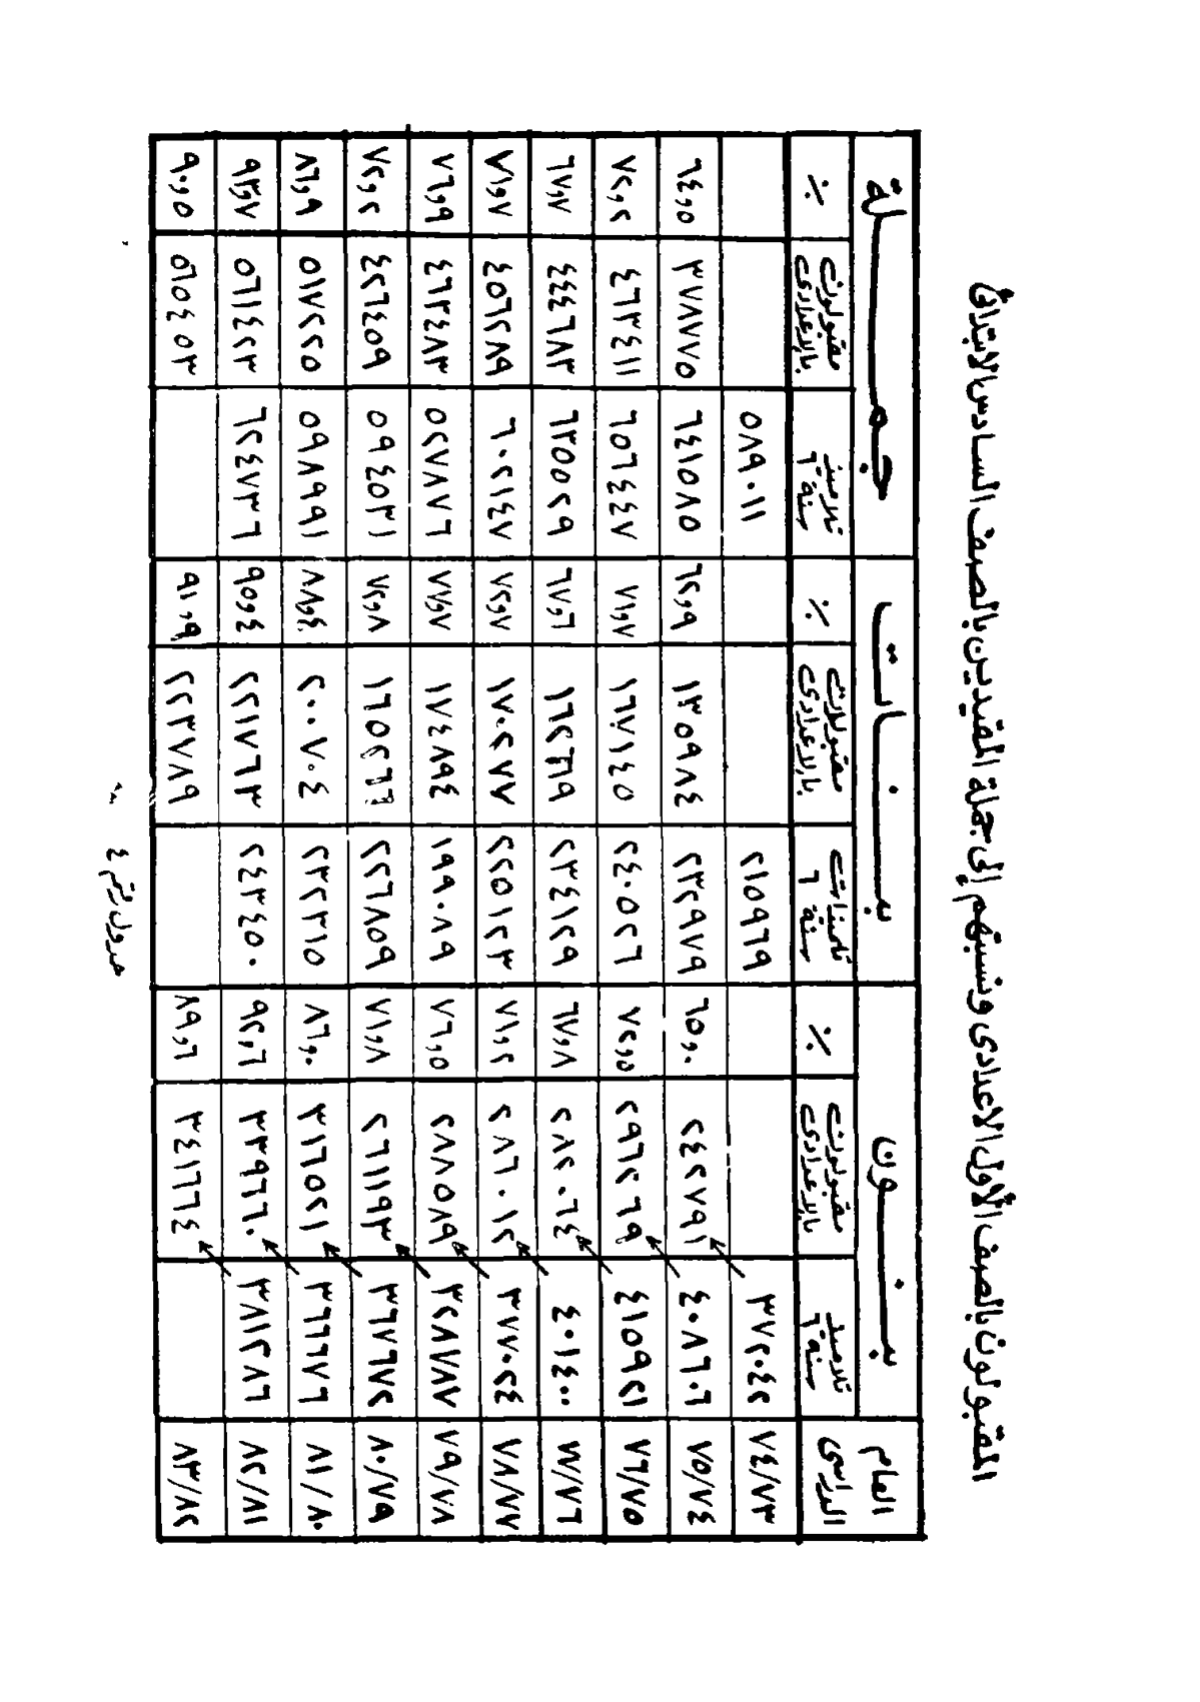 المقبولون بالصف الأول الاعدادى ونسبتهم إلى جملة المقيدين بالصف السادس الابتدائى
العام الدراسى	بنون	بنات	جملة
تلاميذ سنة ٦	مقبولون بالاعدادى	٪	تلميذات سنة ٦	مقبولات بالاعدادى	٪	تلاميذ سنة ٦	مقبولون بالاعدادى	٪
٧٤/٧٣	٣٧٣٠٤٢			٢١٥٩٦٩			٥٨٩٠١١
٧٥/٧٤	٤٠٨٦٠٦	٢٤٢٧٩١	٦٥,٠	٢٣٢٩٧٩	١٣٥٩٨٤	٦٢,٩	٦٤١٥٨٥	٣٧٨٧٧٥	٦٤,٥
٧٦/٧٥	٤١٥٩٢١	٢٩٦٢٦٩	٧٢,٥	٢٤٠٥٢٦	١٦٧١٤٥	٧١,٧	٦٥٦٤٤٧	٤٦٣٤١١	٧٢,٢
٧٧/٧٦	٤٠١٤٠٠	٢٨٢٠٦٤	٦٧,٨	٢٣٤١٢٩	١٦٢٦١٩	٦٧,٦	٦٣٥٥٢٩	٤٤٤٦٨٣	٦٧,٧
٧٨/٧٧	٣٧٧٠٢٤	٢٨٦٠١٢	٧١,٢	٢٢٥١٢٣	١٧٠٢٧٧	٧٢,٧	٦٠٢١٤٧	٤٥٦٢٨٩	٧١,٧
٧٩/٧٨	٣٢٨٧٨٧	٢٨٨٥٨٩	٧٦,٥	١٩٩٠٨٩	١٧٤٨٩٤	٧٧,٧	٥٢٧٨٧٦	٤٦٣٤٨٣	٧٦,٩
٨٠/٧٩	٣٦٧٦٧٢	٢٦١١٩٣	٧١,٨	٢٢٦٨٥٩	١٦٥٢٦٦	٧٢,٨	٥٩٤٥٣١	٤٢٦٤٥٩	٧٢,٢
٨١/٨٠	٣٦٦٦٧٦	٣١٦٥٢١	٨٦,٠	٢٣٢٣١٥	٢٠٠٧٠٤	٨٨,٤	٥٩٨٩٩١	٥١٧٢٢٥	٨٦,٩
٨٢/٨١	٣٨١٢٨٦	٣٣٩٦٦٠	٩٢,٦	٢٤٣٤٥٠	٢٢١٧٦٣	٩٥,٤	٦٢٤٧٣٦	٥٦١٤٢٣	٩٣,٧
٨٣/٨٢		٣٤١٦٦٤	٨٩,٦		٢٢٣٧٨٩	٩١,٩		٥٦٥٤٥٣	٩٠,٥
جدول رقم ٤